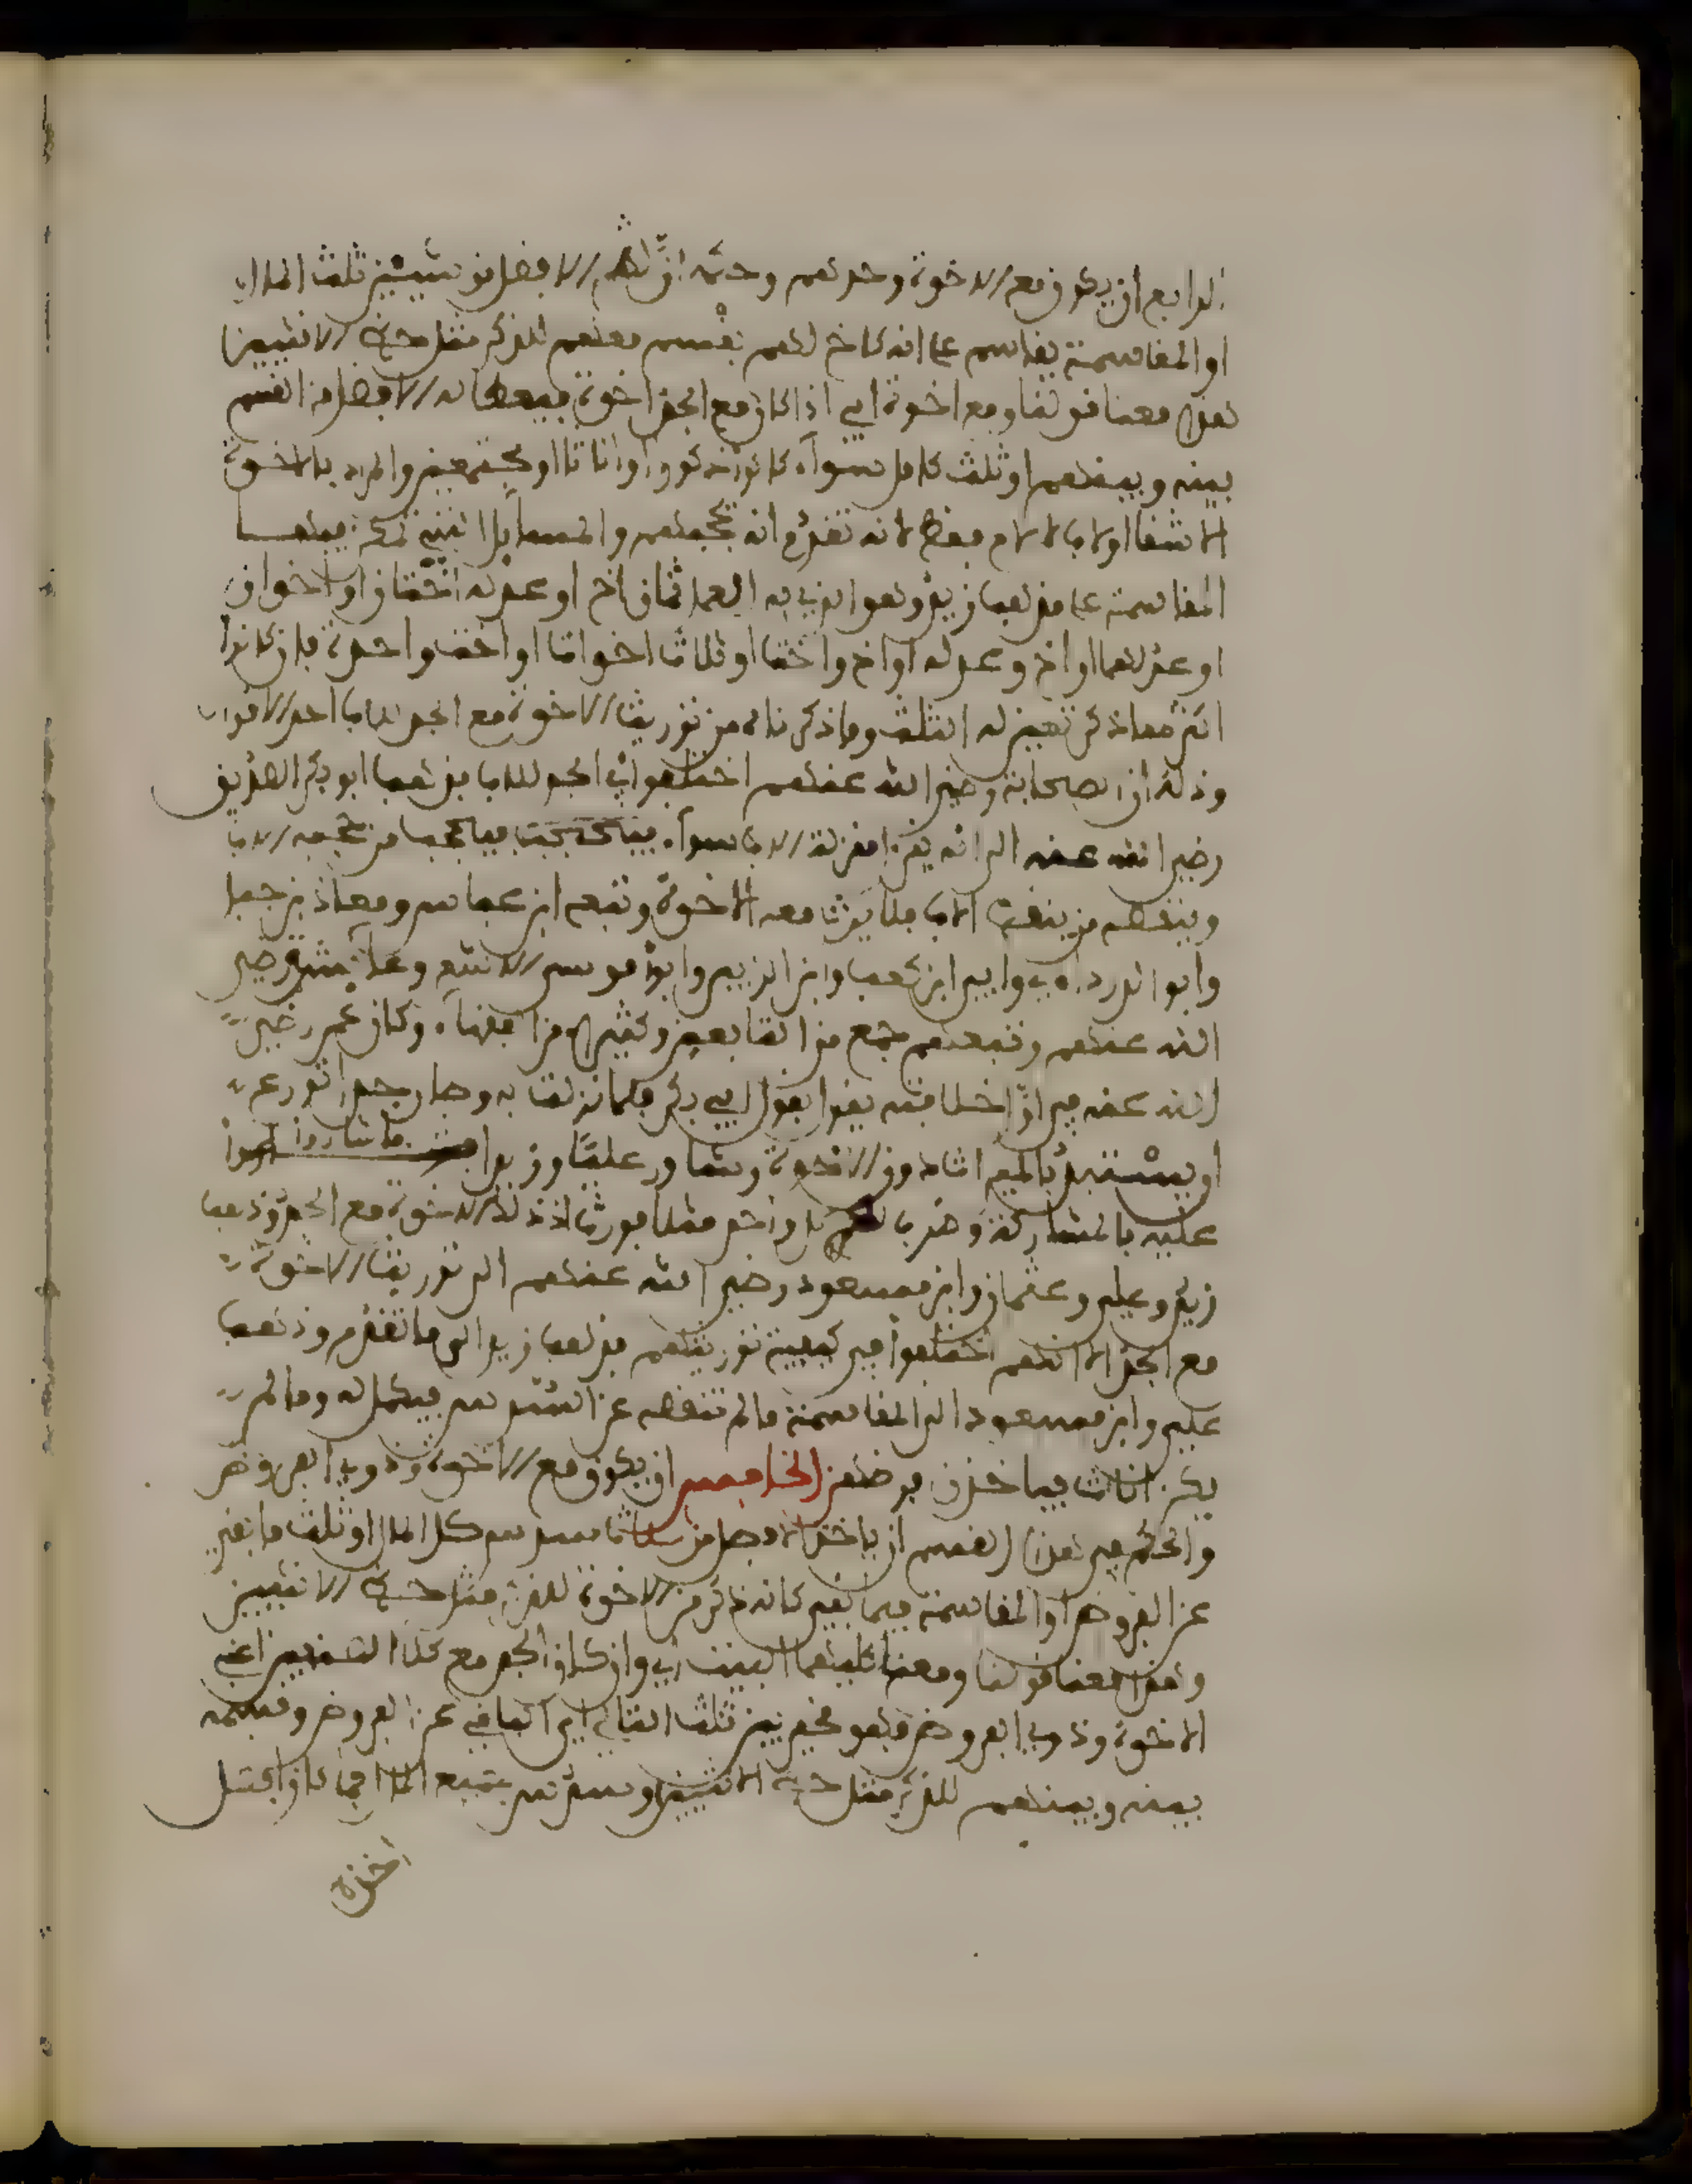 الرابع ان يكون مع الاخوة وحدهم وحكمه ان له الافضل من شيئين ثلث المال
او المقاسمة يقاسم على انه كاخ لهم يقسم معهم للذكر مثل حظ الانثيين
هذا معنا قولنا ومع اخوة اي اذا كان مع الجد اخوة فيعطا له الافضل من القسم
بينه وبينهم او ثلث كامل سوآء كانوا ذكورا او اناثا او مجتمعين والمراد بالاخوة
الاشقا او لاب لا لام فقط لانه تقدم انه يحجبهم والمسايل التي تمكن فيها
المقاسمة على مذهب زيد وهو الذي به العمل ثمان اخ او عدله اختان او اخوان
او عدلهما او اخ وعدله او اخ واختا او ثلاث اخوات او اخت واحدة فان كانوا
اكثر مما ذكر تعين له الثلث وما ذكرناه من توريث الاخوة مع الجد للاب احد الاقوال
وذلك ان الصحابة رضي الله عنهم اختلفوا في الجد للاب فذهب ابو بكر الصديق
رضي الله عنه الى انه ينزل منزلة الاب سوآء فيحجب من يحجبه الاب
وينقص من ينقصه الاب فلا يرث معه الاخوة وتبعه ابن عباس ومعاذ بن جبل
وابو الدرداء وابي ابن كعب وابن الزبير وابو موسى الاشعري وعائشة رضي
الله عنهم وتبعهم جمع من التابعين وكثير من الفقهآء وكان عمر رضي
الله عنه في اول خلافته يقول بقول ابي بكر فلما نزلت به وصار جدا تورع
ان يستبد بالميراث دون الاخوة وشاور عليا وزيدا فاشاروا
عليه بالمشاركة وضربا له مثلا فورث اذ ذلك الاخوة مع الجد وذهب
زيد وعلي وعثمان وابن مسعود رضي الله عنهم الى توريث الاخوة
مع الجد الا انهم اختلفوا في كيفية توريثهم فذهب زيد الى ما تقدم وذهب
علي وابن مسعود الى المقاسمة ما لم تنقصه عن السدس فيكمل له وما لم
يكن اناث فياخذن فرضهن الخامس ان يكون مع الاخوة وذوي الفروض
والحكم في هذا القسم ان ياخذ الافضل من ثلاثة سدس كل المال او ثلث ما بقي
عن الفروض او المقاسمة فيما بقي كانه ذكر من الاخوة للذكر مثل حظ الانثيين
وهذا معنا قولنا ومعنا كليهما البيت اي وان كان الجد مع كلا الصنفين اعني
الاخوة وذوي الفروض فهو مخير بين ثلث التالي اي الباقي عن الفروض وقسمه
بينه وبينهم للذكر مثل حظ الانثيين وسدس جميع المال فما كان افضل
اخذه